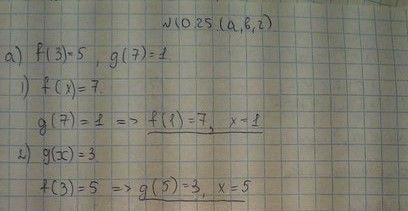 №10.25.(а,в,г)
а) f(3)=5, g(7)=1
1) f(x)=7.
g(7)=1 => f(1)=7, x=1
2) g(x)=3.
f(3)=5 => g(5)=3, x=5